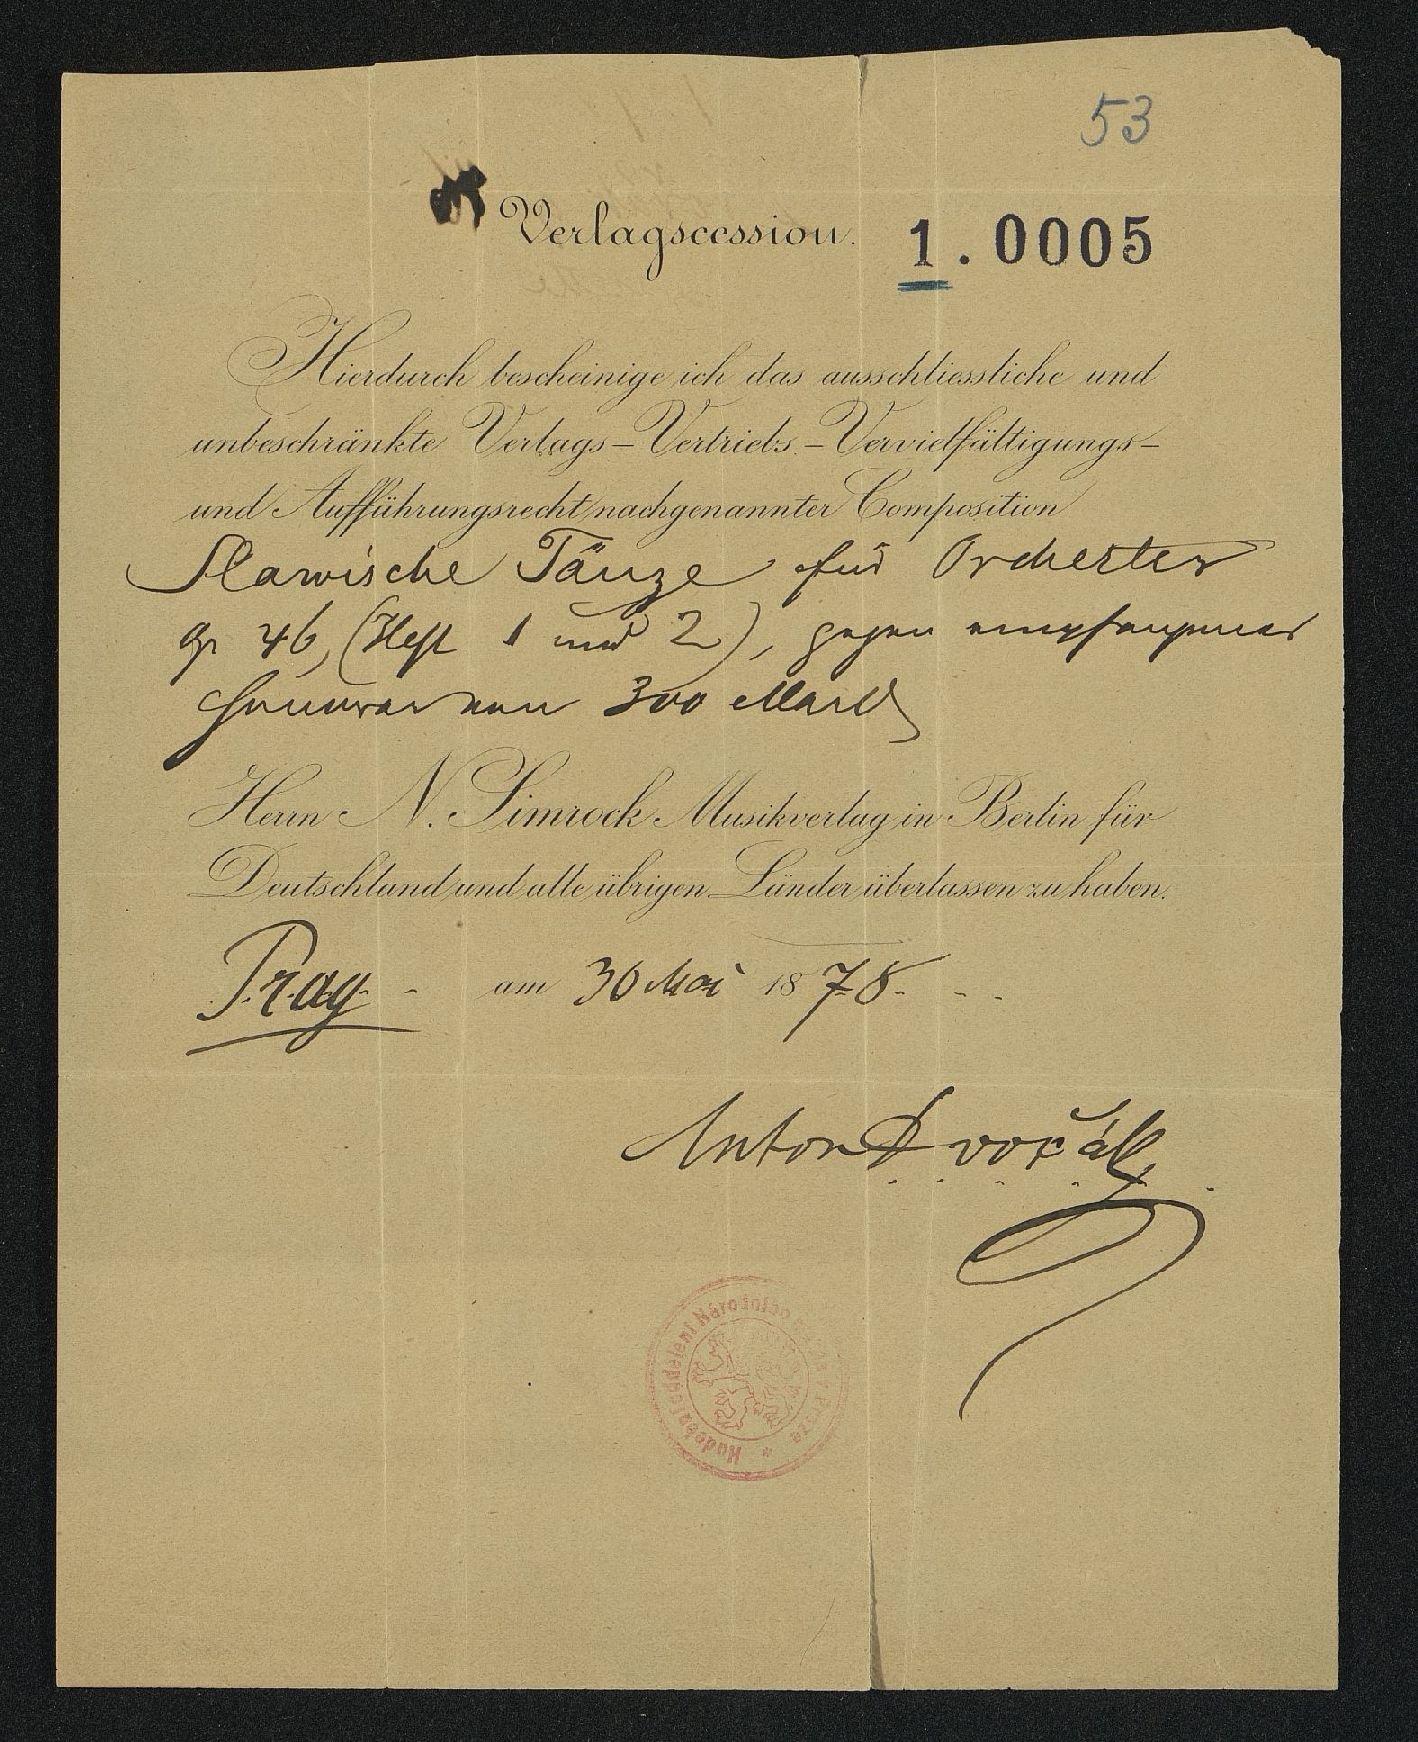 53
Verlagscession.
1.0005
Hierdurch bescheinige ich das ausschliessliche und
unbeschränkte Verlags-Vertriebs-Vervielfältigungs-
und Aufführungsrecht nachgenannter Composition
Slawische Tänze für Orchester
Op 46, (Heft 1 und 2), gegen empfangenes
Honorar von 300 Mark
Herrn N. Simrock Musikverlag in Berlin für
Deutschland und alle übrigen Länder überlassen zu haben.
Prag am 30 Mai 1878
Anton Dvořák
Hudební oddělení Národního